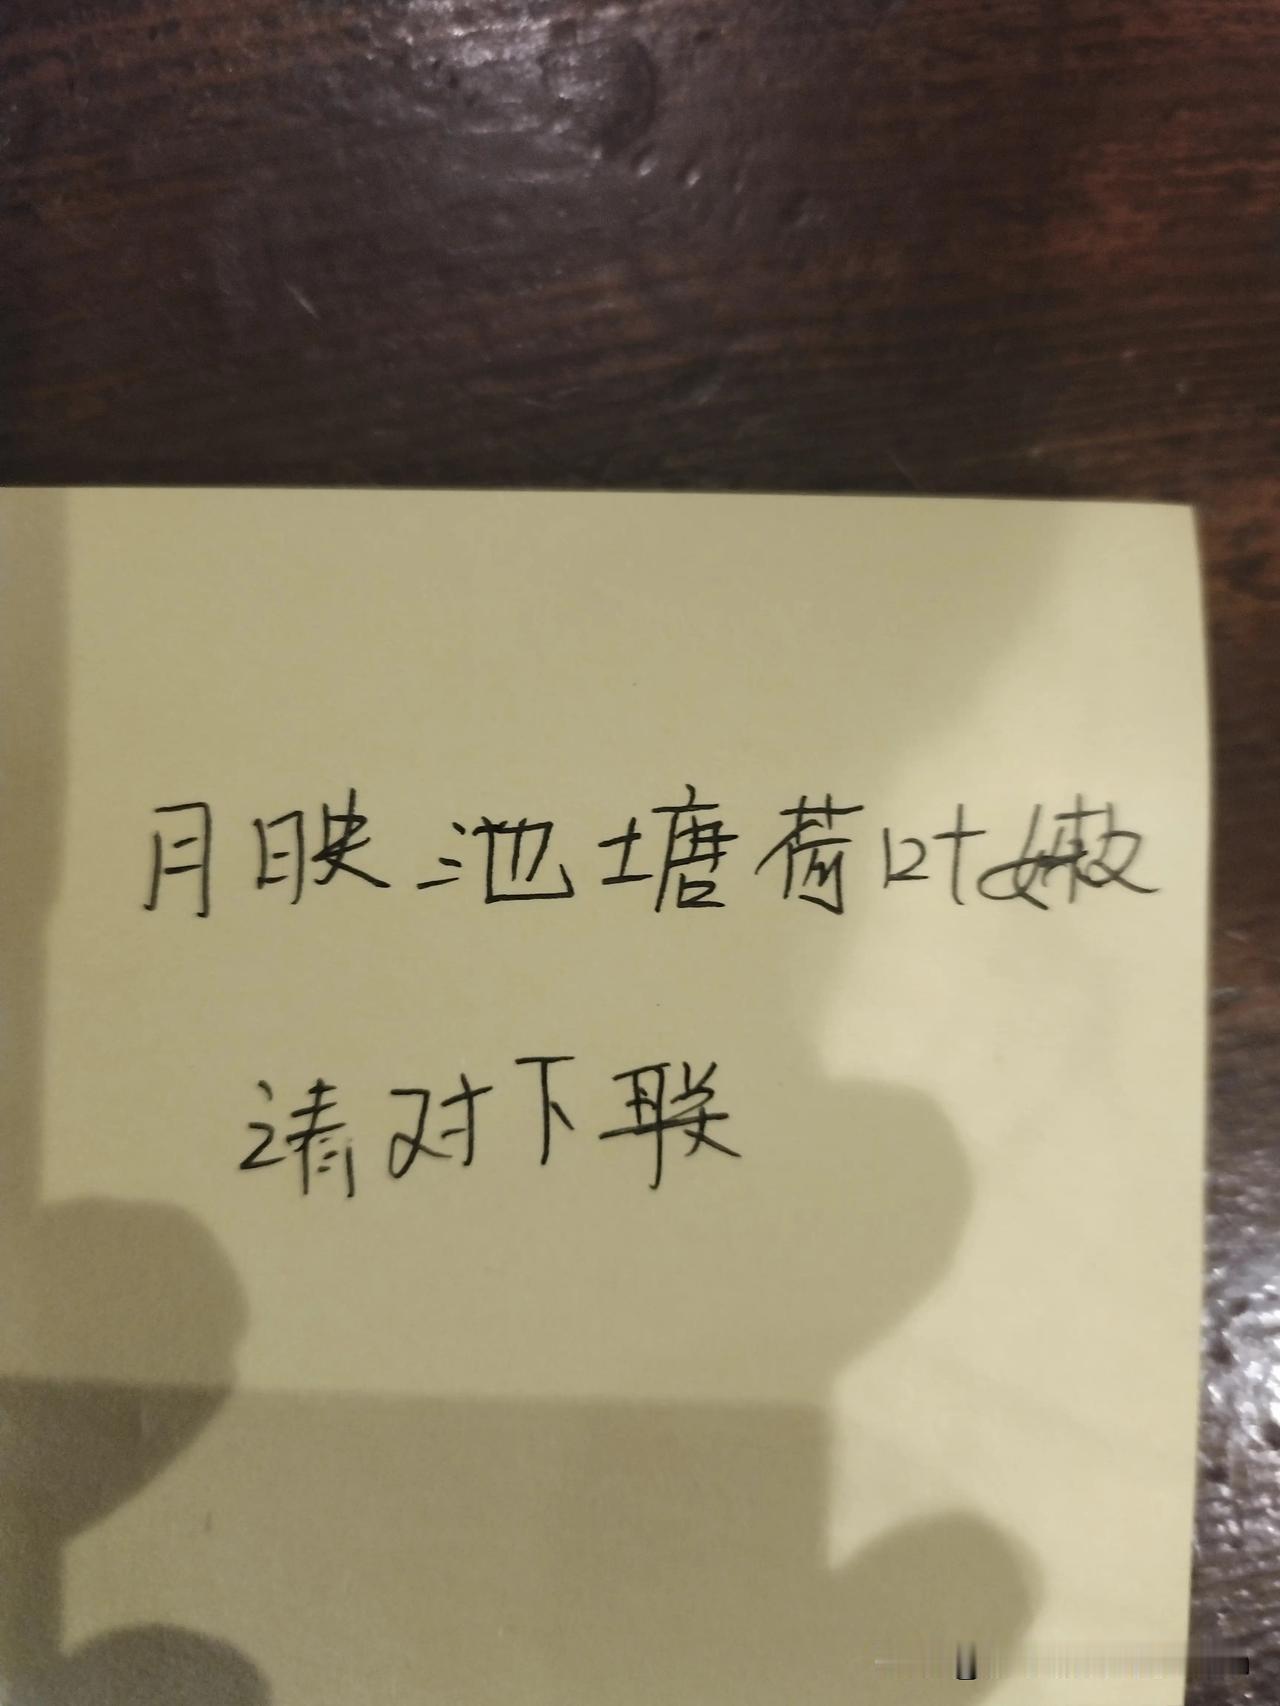 月映池塘荷叶嫩
请对下联